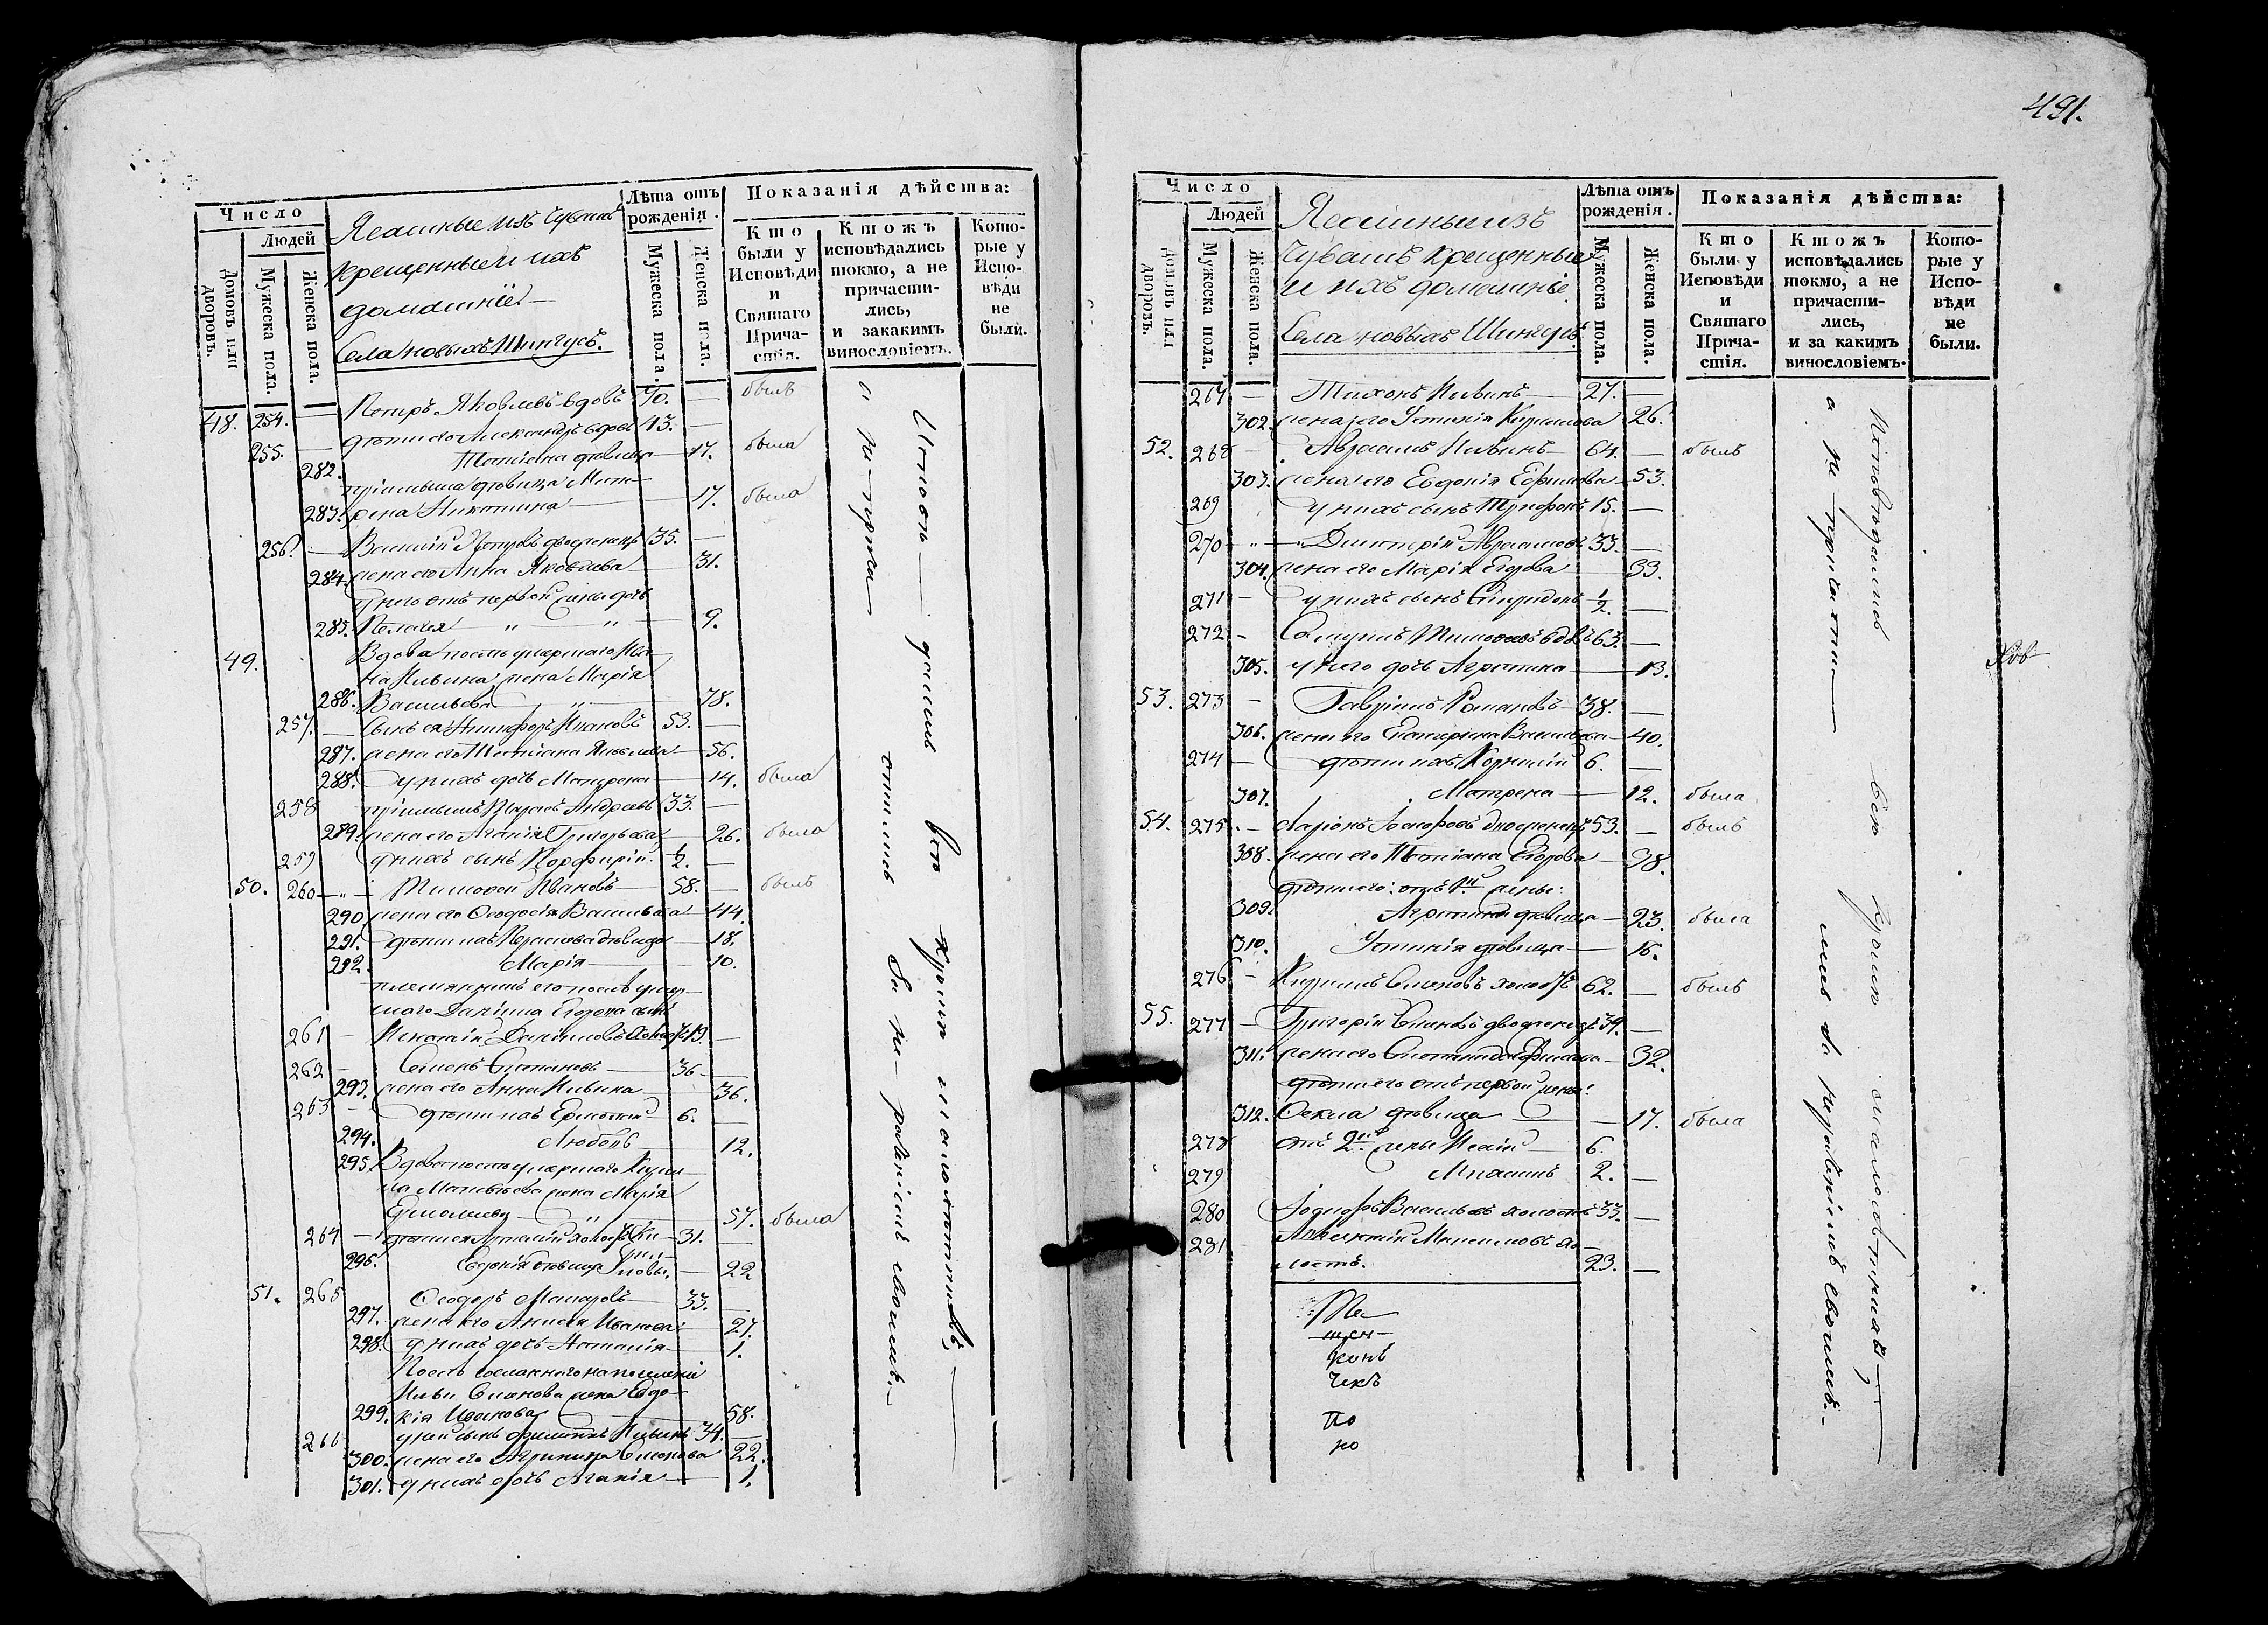 491.
Число
Людей
Домовъ или дворовъ.
Мужеска пола.
Женска пола.
Ясашные изъ Чувашъ
крещенныеи ихъ
домашніе.—
Села новыхъ Шимкусъ.
Лѣта отъ рожденія.
Мужеска пола.
Женска пола.
Показанія дѣйства:
Кто были у Исповѣди и Святаго Причастія.
Ктожъ исповѣдались токмо, а не причастились, и закакимъ винословіемъ.
Которые у Исповѣди не были.
48. 254. — Петръ Яковлевъ вдовъ 70. — былъ
255. — дѣти его Александръ вдовъ 43. —
282. Татіана дѣвица — 17. была
пріемыша дѣвица Мат-
283. рена Никитина — 17. была
256. — Василій Петровъ двоеженецъ 35. —
284. жена его Анна Яковлева — 31.
у него отъ первой жены дочь
285. Пелагея „ „ 9.
49. Вдова послѣ умершаго Ива-
на Ильина жена Марія
286. Васильева „ — 78.
257. — сынъ ея Никифоръ Ивановъ 53. —
287. жена его Татіана Яковлева — 56.
288. у нихъ дочь Матрена — 14. была
258 пріемышъ Андреевъ 33. —
289. жена его Агафія Григорьева — 26. была
259 у нихъ сынъ Порфирій ½. —
50. 260 — „ — Тимофей Ивановъ — 58. — былъ
290 жена его Ѳеодосія Васильева — 44.
291. дѣти ихъ дѣвица — 18.
292. Марія — 10.
племянникъ его послѣ умер-
шаго Даніила Егорова сынъ
261 — Игнатій Даниловъ холостъ 19. —
262 — Семенъ Степановъ — 36 —
293. жена его Анна Ильина — 36.
263 — дѣти ихъ Ермолай 6. —
294. Любовь — 12.
295. Вдова послѣ умершаго Кирил-
ла Матвѣева жена Марія
Ермолаева „ — 57. была
264 — дѣти ея холостъ Ки- 31. —
296. Евдокія дѣвица риловы. — 22
51. 265 Ѳеодоръ Макаровъ — 33. —
297. жена его Анисья Иванова — 27.
298. у нихъ дочь Наталія — 1.
Послѣ сосланнаго на поселеніе
Ильи Семенова жена Евдо-
299. кія Иванова — 58.
266 у ней сынъ Ильинъ 34. —
300. жена его Агрипина Семенова 22.
301. у нихъ дочь Агафія — 1.
Исповѣ— дались всѣ кромѣ малолѣтнихъ,
а не прича— стились за не— радѣніемъ своимъ.—
Число
Людей
Домовъ или дворовъ.
Мужеска пола.
Женска пола.
Ясашныеизъ
Чувашъ крещенные
и ихъ домашніе.
Села новыхъ Шимкусъ.
Лѣта отъ рожденія.
Мужеска пола.
Женска пола.
Показанія дѣйства:
Кто были у Исповѣди и Святаго Причастія.
Ктожъ исповѣдались токмо, а не причастились, и за какимъ винословіемъ.
Которые у Исповѣди не были.
267 — Тихонъ Ильинъ — 27. —
302. жена его Устинія Кирилова 26.
52. 268 — Авраамъ Ильинъ — 64. — былъ
303. жена его Евдокія Ефимова — 53.
269 у нихъ сынъ Трифонъ 15. —
270 — „ — Дмитрій Авраамовъ 33. —
304. жена его Марія Егорова — 33.
271 — у нихъ сынъ Спиридонъ ½. —
272 — Самуилъ Тимофеевъ вдовъ 63. —
305. у него дочь Агрипина — 13.
53. 273 — Гавріилъ Романовъ — 38. —
306. жена его Екатерина Васильева — 40.
274 — дѣти ихъ Корнилій 6. —
307. Матрена — 12. была
54. 275. — Ларіонъ двоеженецъ 53. — былъ
308. жена его Татіана Егорова — 38.
дѣти его: отъ 1й жены:
309. Агрипина дѣвица — 23. была
310. Устинія дѣвица — 16.
276 — Кирилъ Семеновъ холостъ 62. — былъ
55. 277 — Григорій двоеженецъ 39. —
311. жена его Ефимова — 32.
дѣти его отъ первой жены:
312. Ѳекла дѣвица — 17. была
278 отъ 2й жены Исай 6.
279 Михаилъ 2. —
280 Ѳедоръ Васильевъ холостъ 33. —
281 Максимовъ хо-
лостъ. 23. —
Исповѣдались всѣ кромѣ малолѣтнихъ,—
а не причасти— лись за нерадѣніемъ своимъ.—